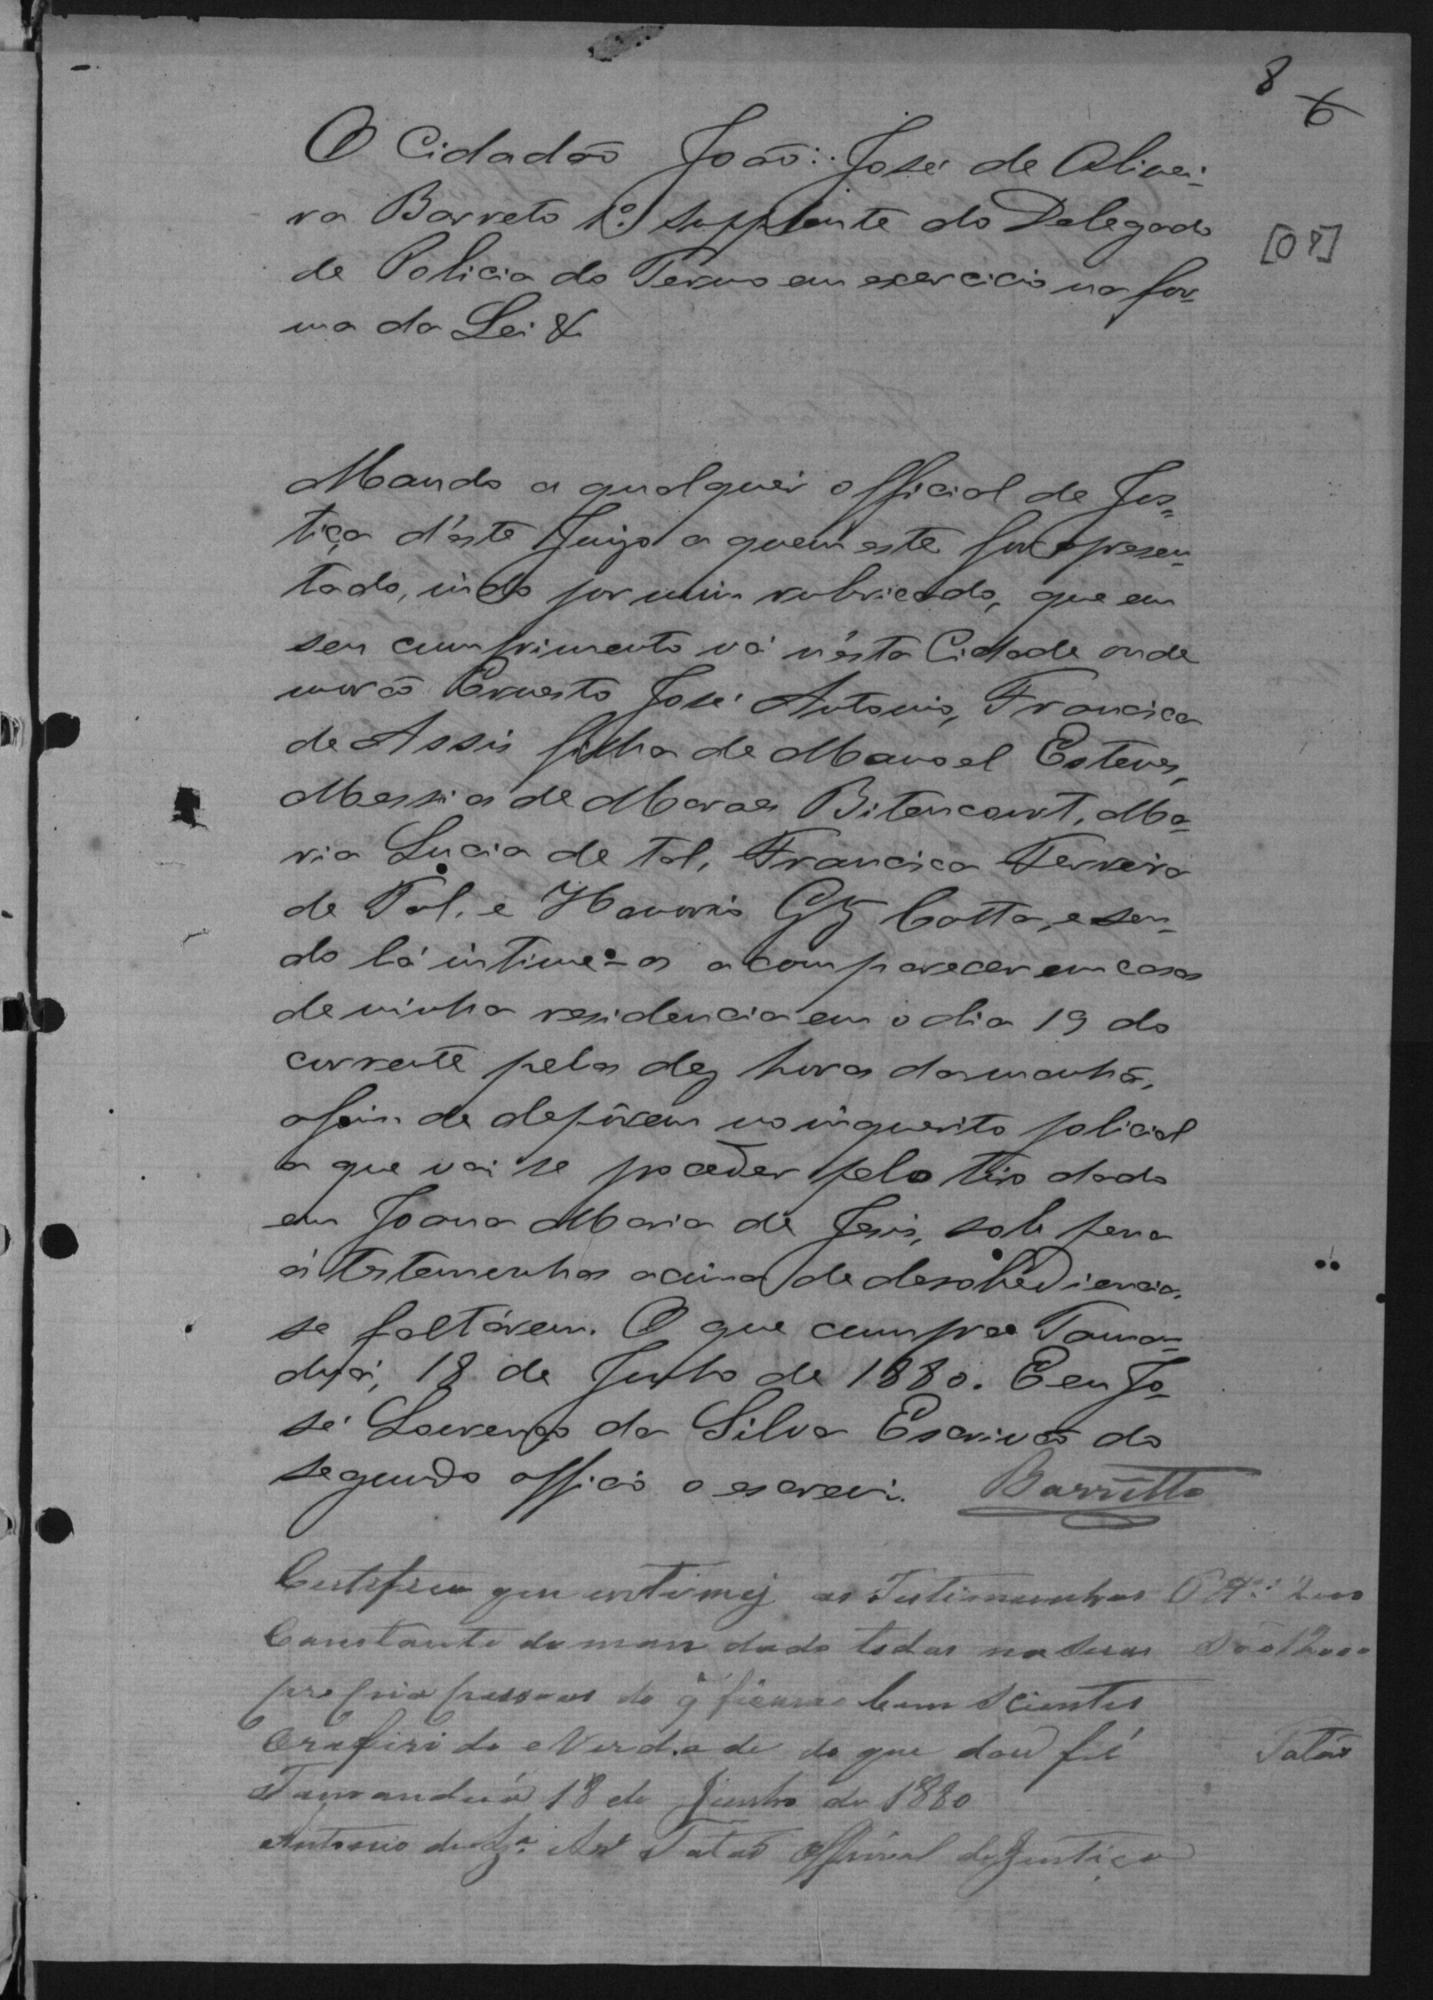 8
6
O Cidadão João José de Olivei-
ra Barreto 1º supplente do Delegado
[08]
de Policia do Termo em exercicio na for-
ma da Lei &
Mando a qualquer official de Jus-
tiça d'este Juizo a quem este for apresen-
tado, indo por mim rubricado, que em
seu cumprimento vá n'esta Cidade onde
morão Ernesto José Antonio, Francisca
de Assis filha de Manoel Esteves,
Messias de Moraes Bitencourt, Ma-
ria Lucia de tal, Francisca Ferreira
de Tal, e Honorio Glz Cotta, e sen-
do lá intime-os a comparecer em casa
de minha residencia em o dia 19 do
corrente pelas dez horas da manhã,
afim de depôrem no inquerito policial
a que vai se proceder pelo tiro dado
em Joana Maria de Jesus, sob pena
ás testemunhas acima de desobediencia,
se faltárem. O que cumpra Taman-
duá, 18 de Junho de 1880. E eu Jo-
sé Lourenço da Silva Escrivão do
segundo officio o escrevi. Barretto
Certifico que intimej as Testimunhas
Constante do mandado todas na suas
propria pessoas do q̃ ficarão bem scientes
O rifirido e Verdade do que dou fé
Tatão
Tamanduá 18 de Junho de 1880
Antonio de Tatão Official de Justiça